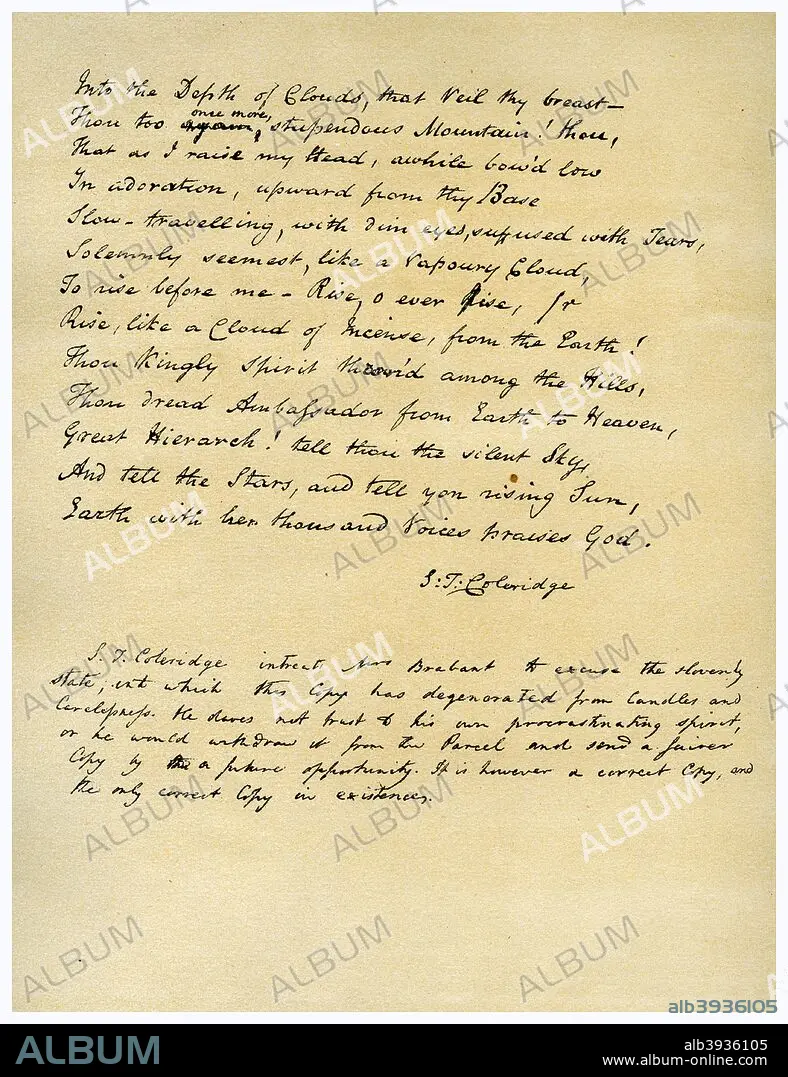 Into the Depth of Clouds, that Veil thy breast—
Thou too once more, stupendous Mountain! thou,
That as I raise my Head, awhile bow'd low
In adoration, upward from thy Base
Slow-travelling, with dim eyes, suffused with Tears,
Solemnly seemest, like a Vapoury Cloud,
To rise before me – Rise, o ever Rise,
Rise, like a Cloud of Incense, from the Earth!
Thou Kingly Spirit thron'd among the Hills,
Thou dread Ambassador from Earth to Heaven,
Great Hierarch! tell thou the silent Sky,
And tell the Stars, and tell yon rising Sun,
Earth with her thousand Voices praises God.
S: T: Coleridge
S. T. Coleridge intreats Mrs Brabant to excuse the slovenly
state, into which this Copy has degenerated from Candles and
Carelessness. He dares not trust to his own procrastinating spirit,
or he would withdraw it from the Parcel and send a fairer
Copy by a future opportunity. It is however a correct Copy, and
the only correct Copy in existence.
ALBUM
alb3936105
ALBUM
alb3936105
www.album-online.com